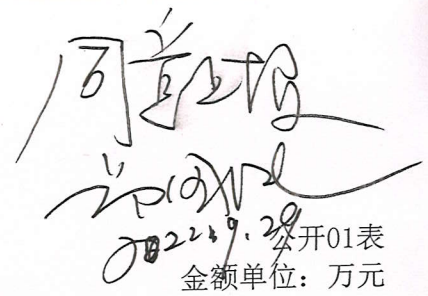 同意上报
2022.9.29
公开01表
金额单位：万元